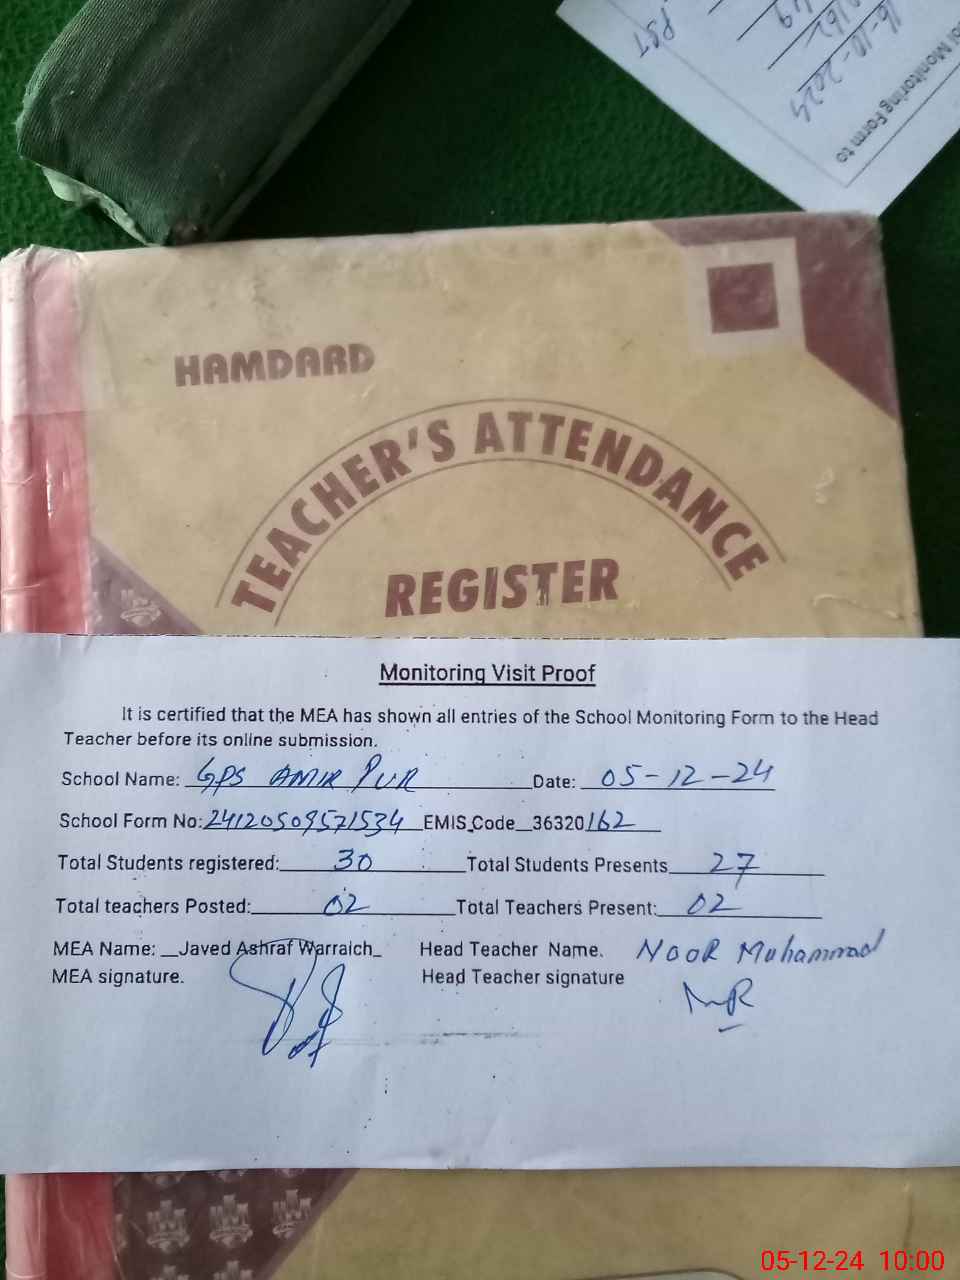 PST
49
162
16-10-2024
ool Monitoring Form to
HAMDARD
TEACHER'S ATTENDANCE
REGISTER
Monitoring Visit Proof
It is certified that the MEA has shown all entries of the School Monitoring Form to the Head
Teacher before its online submission.
School Name: GPS AMIR PUR Date: 05-12-24
School Form No: 24120509571534 EMIS Code 36320162
Total Students registered: 30 Total Students Presents 27
Total teachers Posted: 02 Total Teachers Present: 02
MEA Name: Javed Ashraf Warraich Head Teacher Name. NOOR Muhammad
MEA signature. Head Teacher signature NR
05-12-24 10:00